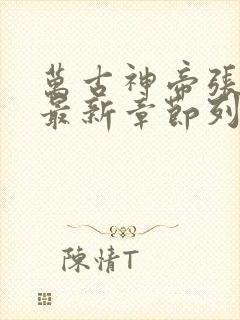 萬古神帝張
最新章節列
陳情T